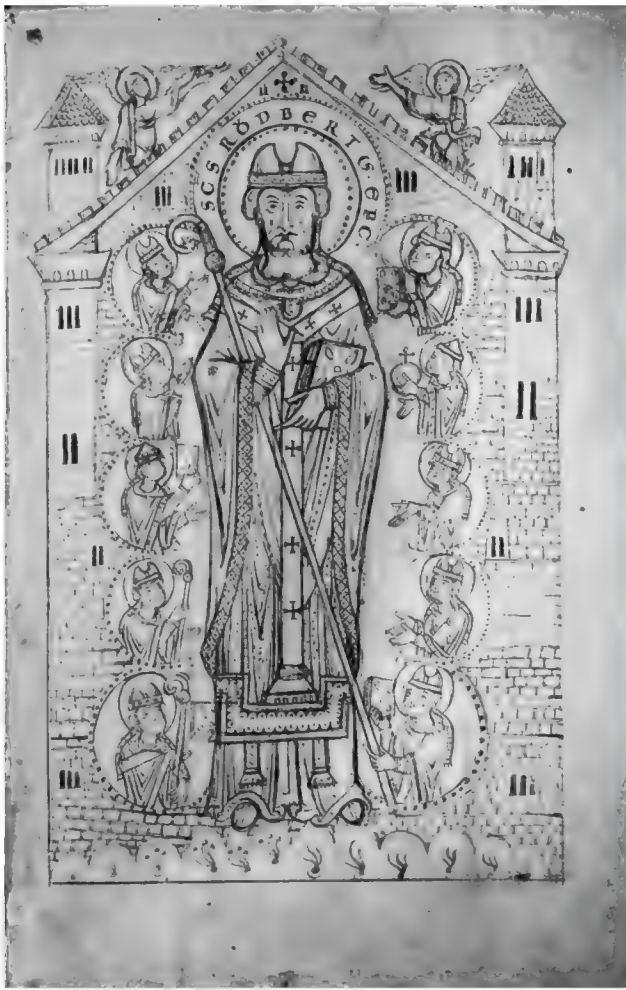 SCS RŎDBERTꝰ EPC